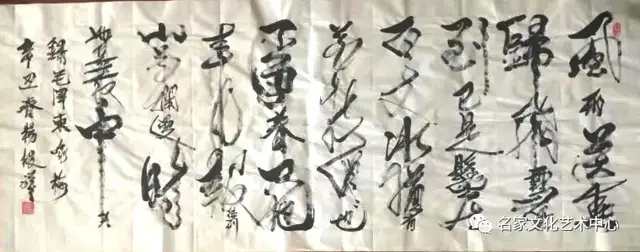 風雨送春
歸飛雪迎春
到已是懸崖
百丈冰猶有
花枝俏俏也
不争春只把
春来報待到
山花爛漫时
她在丛中笑
錄毛泽東咏梅
辛丑春杨
名家文化艺术中心